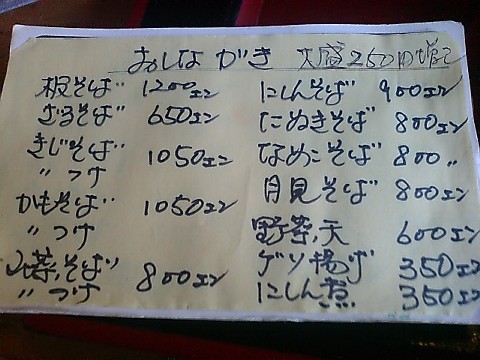 おしながき 大盛250円増し
板そば 1200エン
ざるそば 650エン
きじそば 1050エン
〃 つけ
かもそば 1050エン
〃 つけ
山菜そば 800エン
〃 づけ
にしんそば 900エン
たぬきそば 800エン
なめこそば 800〃
月見そば 800エン
野菜天 600エン
ゲソ揚げ 350エン
にしん煮 350エン